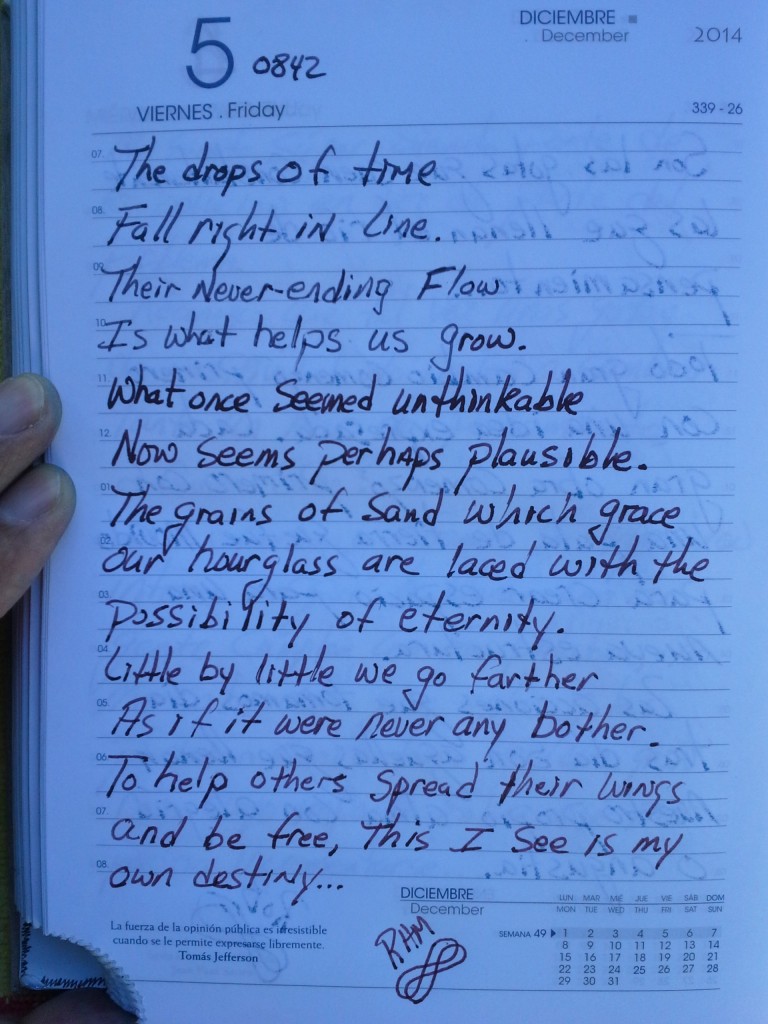 DICIEMBRE
December
2014
5
0842
VIERNES . Friday
339 - 26
07. The drops of time
08. Fall right in line.
09. Their Never-ending Flow
10. Is what helps us grow.
11. What once seemed unthinkable
12. Now seems perhaps plausible.
01. The grains of sand which grace
02. our hourglass are laced with the
03. possibility of eternity.
04. Little by little we go farther
05. As if it were never any bother.
06. To help others spread their wings
07. and be free, this I see is my
08. own destiny...
La fuerza de la opinión pública es irresistible
cuando se le permite expresarse libremente.
Tomás Jefferson
RHM
DICIEMBRE
December
LUN MAR MIE JUE VIE SAB DOM
MON TUE WED THU FRI SAT SUN
SEMANA 49 1 2 3 4 5 6 7
8 9 10 11 12 13 14
15 16 17 18 19 20 21
22 23 24 25 26 27 28
29 30 31